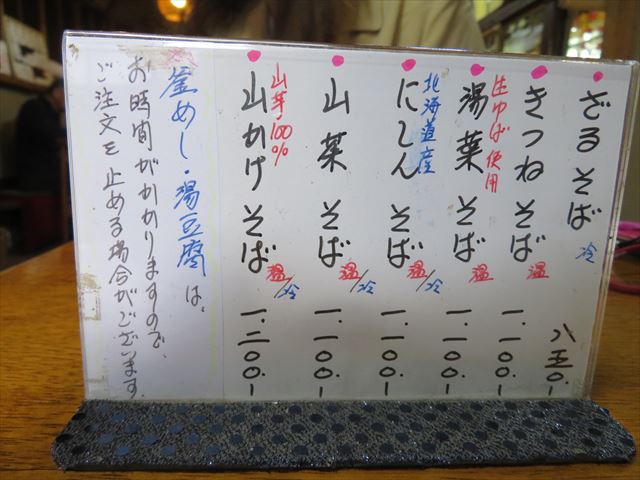 ざるそば 冷 八五〇.-
きつねそば 温 一.一〇〇.-
生ゆば使用
湯葉そば 温 一.一〇〇.-
北海道産
にしんそば 温/冷 一.一〇〇.-
山菜そば 温/冷 一.一〇〇.-
山芋100%
山かけそば 温/冷 一.二〇〇.-
釜めし・湯豆腐は、
お時間がかかりますので、
ご注文を止める場合がございます.